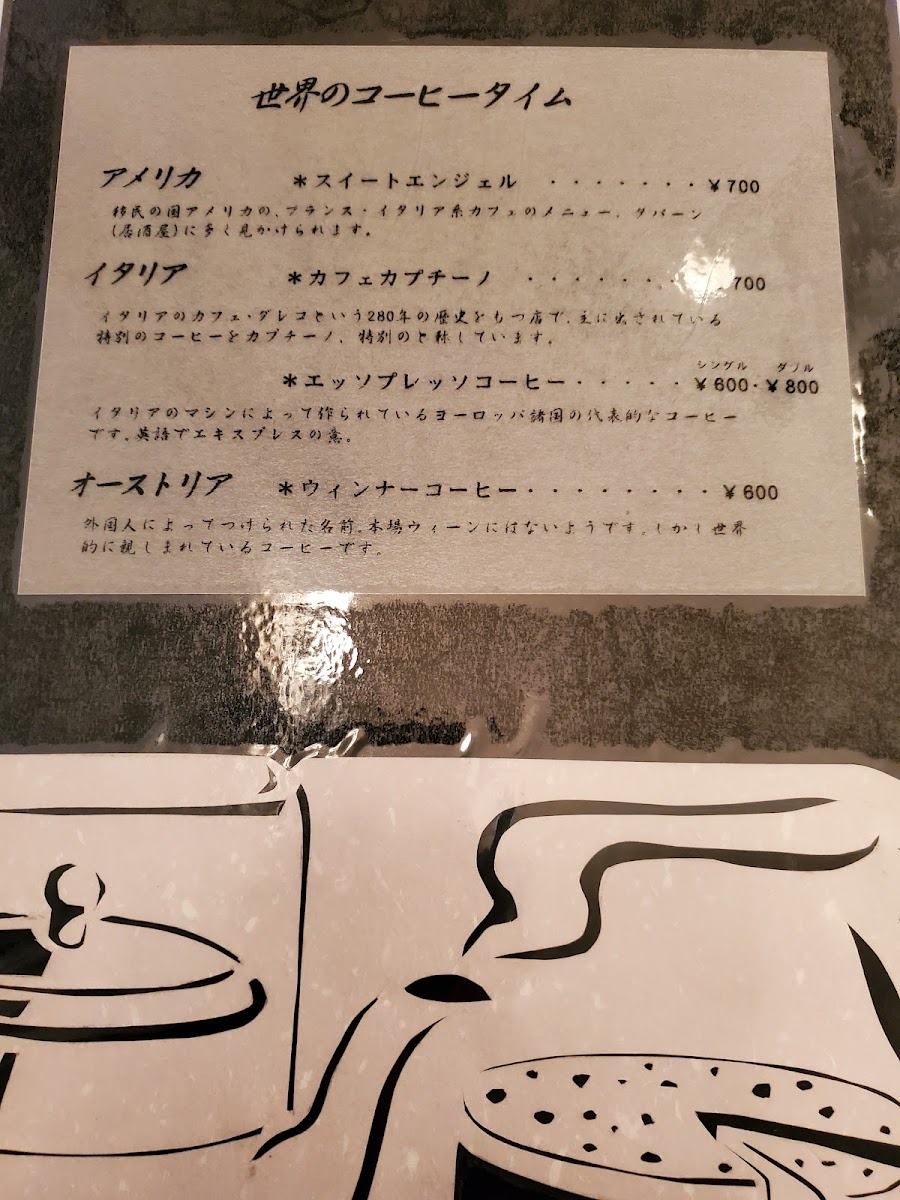 世界のコーヒータイム
アメリカ *スイートエンジェル ・・・・・・・¥700
移民の国アメリカの、フランス・イタリア系カフェのメニュー、タバーン
(居酒屋)に多く見かけられます。
イタリア *カフェカプチーノ ・・・・・・・700
イタリアのカフェ・ダレコという280年の歴史をもつ店で、主に出されている
特別のコーヒーをカプチーノ、特別のと称しています。
シングル ダブル
*エッソプレッソコーヒー・・・・・¥600・¥800
イタリアのマシンによって作られているヨーロッパ諸国の代表的なコーヒー
です。英語でエキスプレスの意。
オーストリア *ウィンナーコーヒー・・・・・・・・¥600
外国人によってつけられた名前。本場ウィーンにはないようです。しかし世界
的に親しまれているコーヒーです。